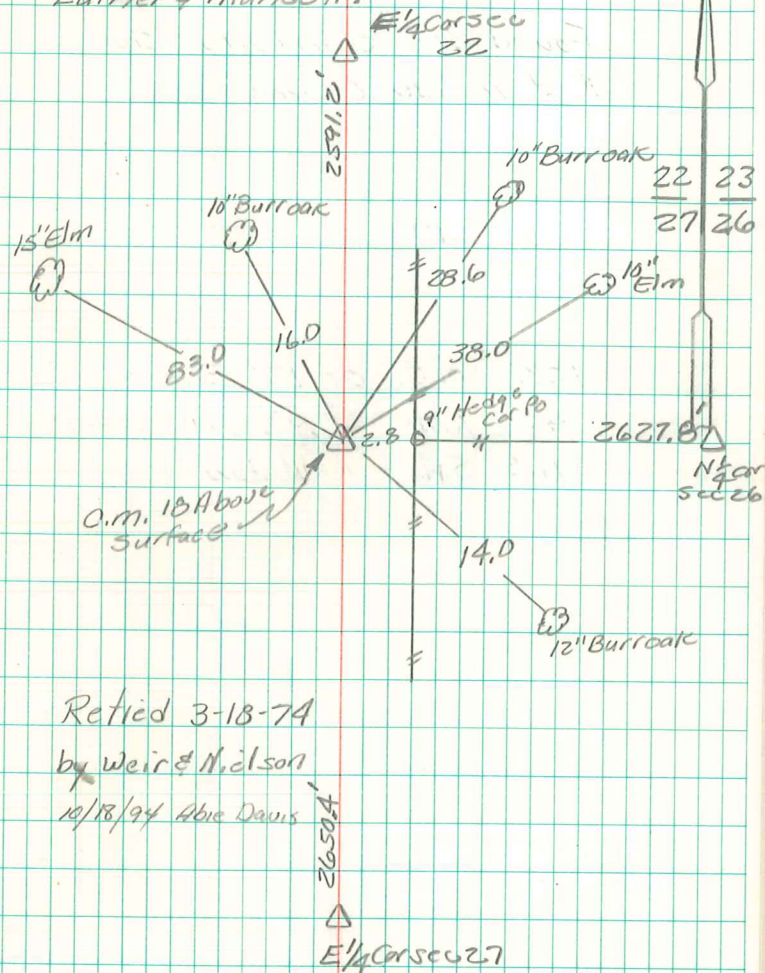 E 1/4 Cor sec
22
2591.2'
10" Burroak
22 23
27 26
10" Burroak
15" Elm
10" Elm
28.6
16.0
38.0
83.0
9" Hedge
Cor Po
2.8
2627.8'
N 1/4 cor
Sec 26
C.m. 18 Above
Surface
14.0
12" Burroak
Retied 3-18-74
by Weir & Nielson
10/18/94 Abie Davis
2650.4'
E 1/4 Cor sec 27